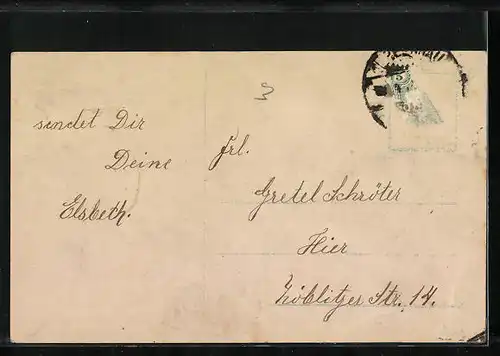 sendet Dir
Deine
Elsbeth.
Frl.
Gretel Schröter
Hier
Zöblitzer Str. 14.